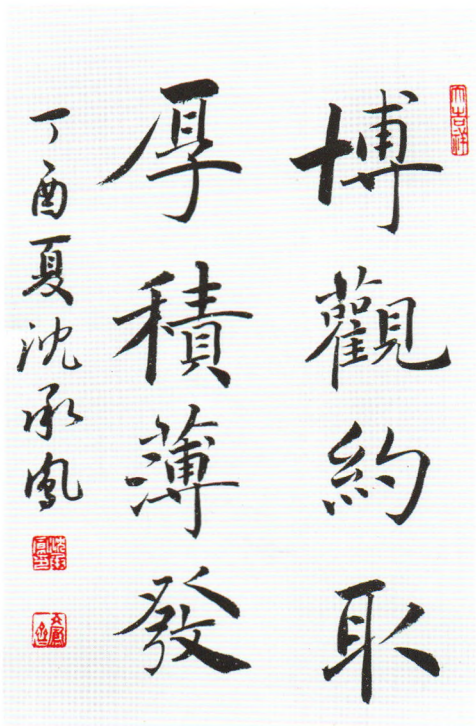 博觀約取
厚積薄發
丁酉夏沈承鳳